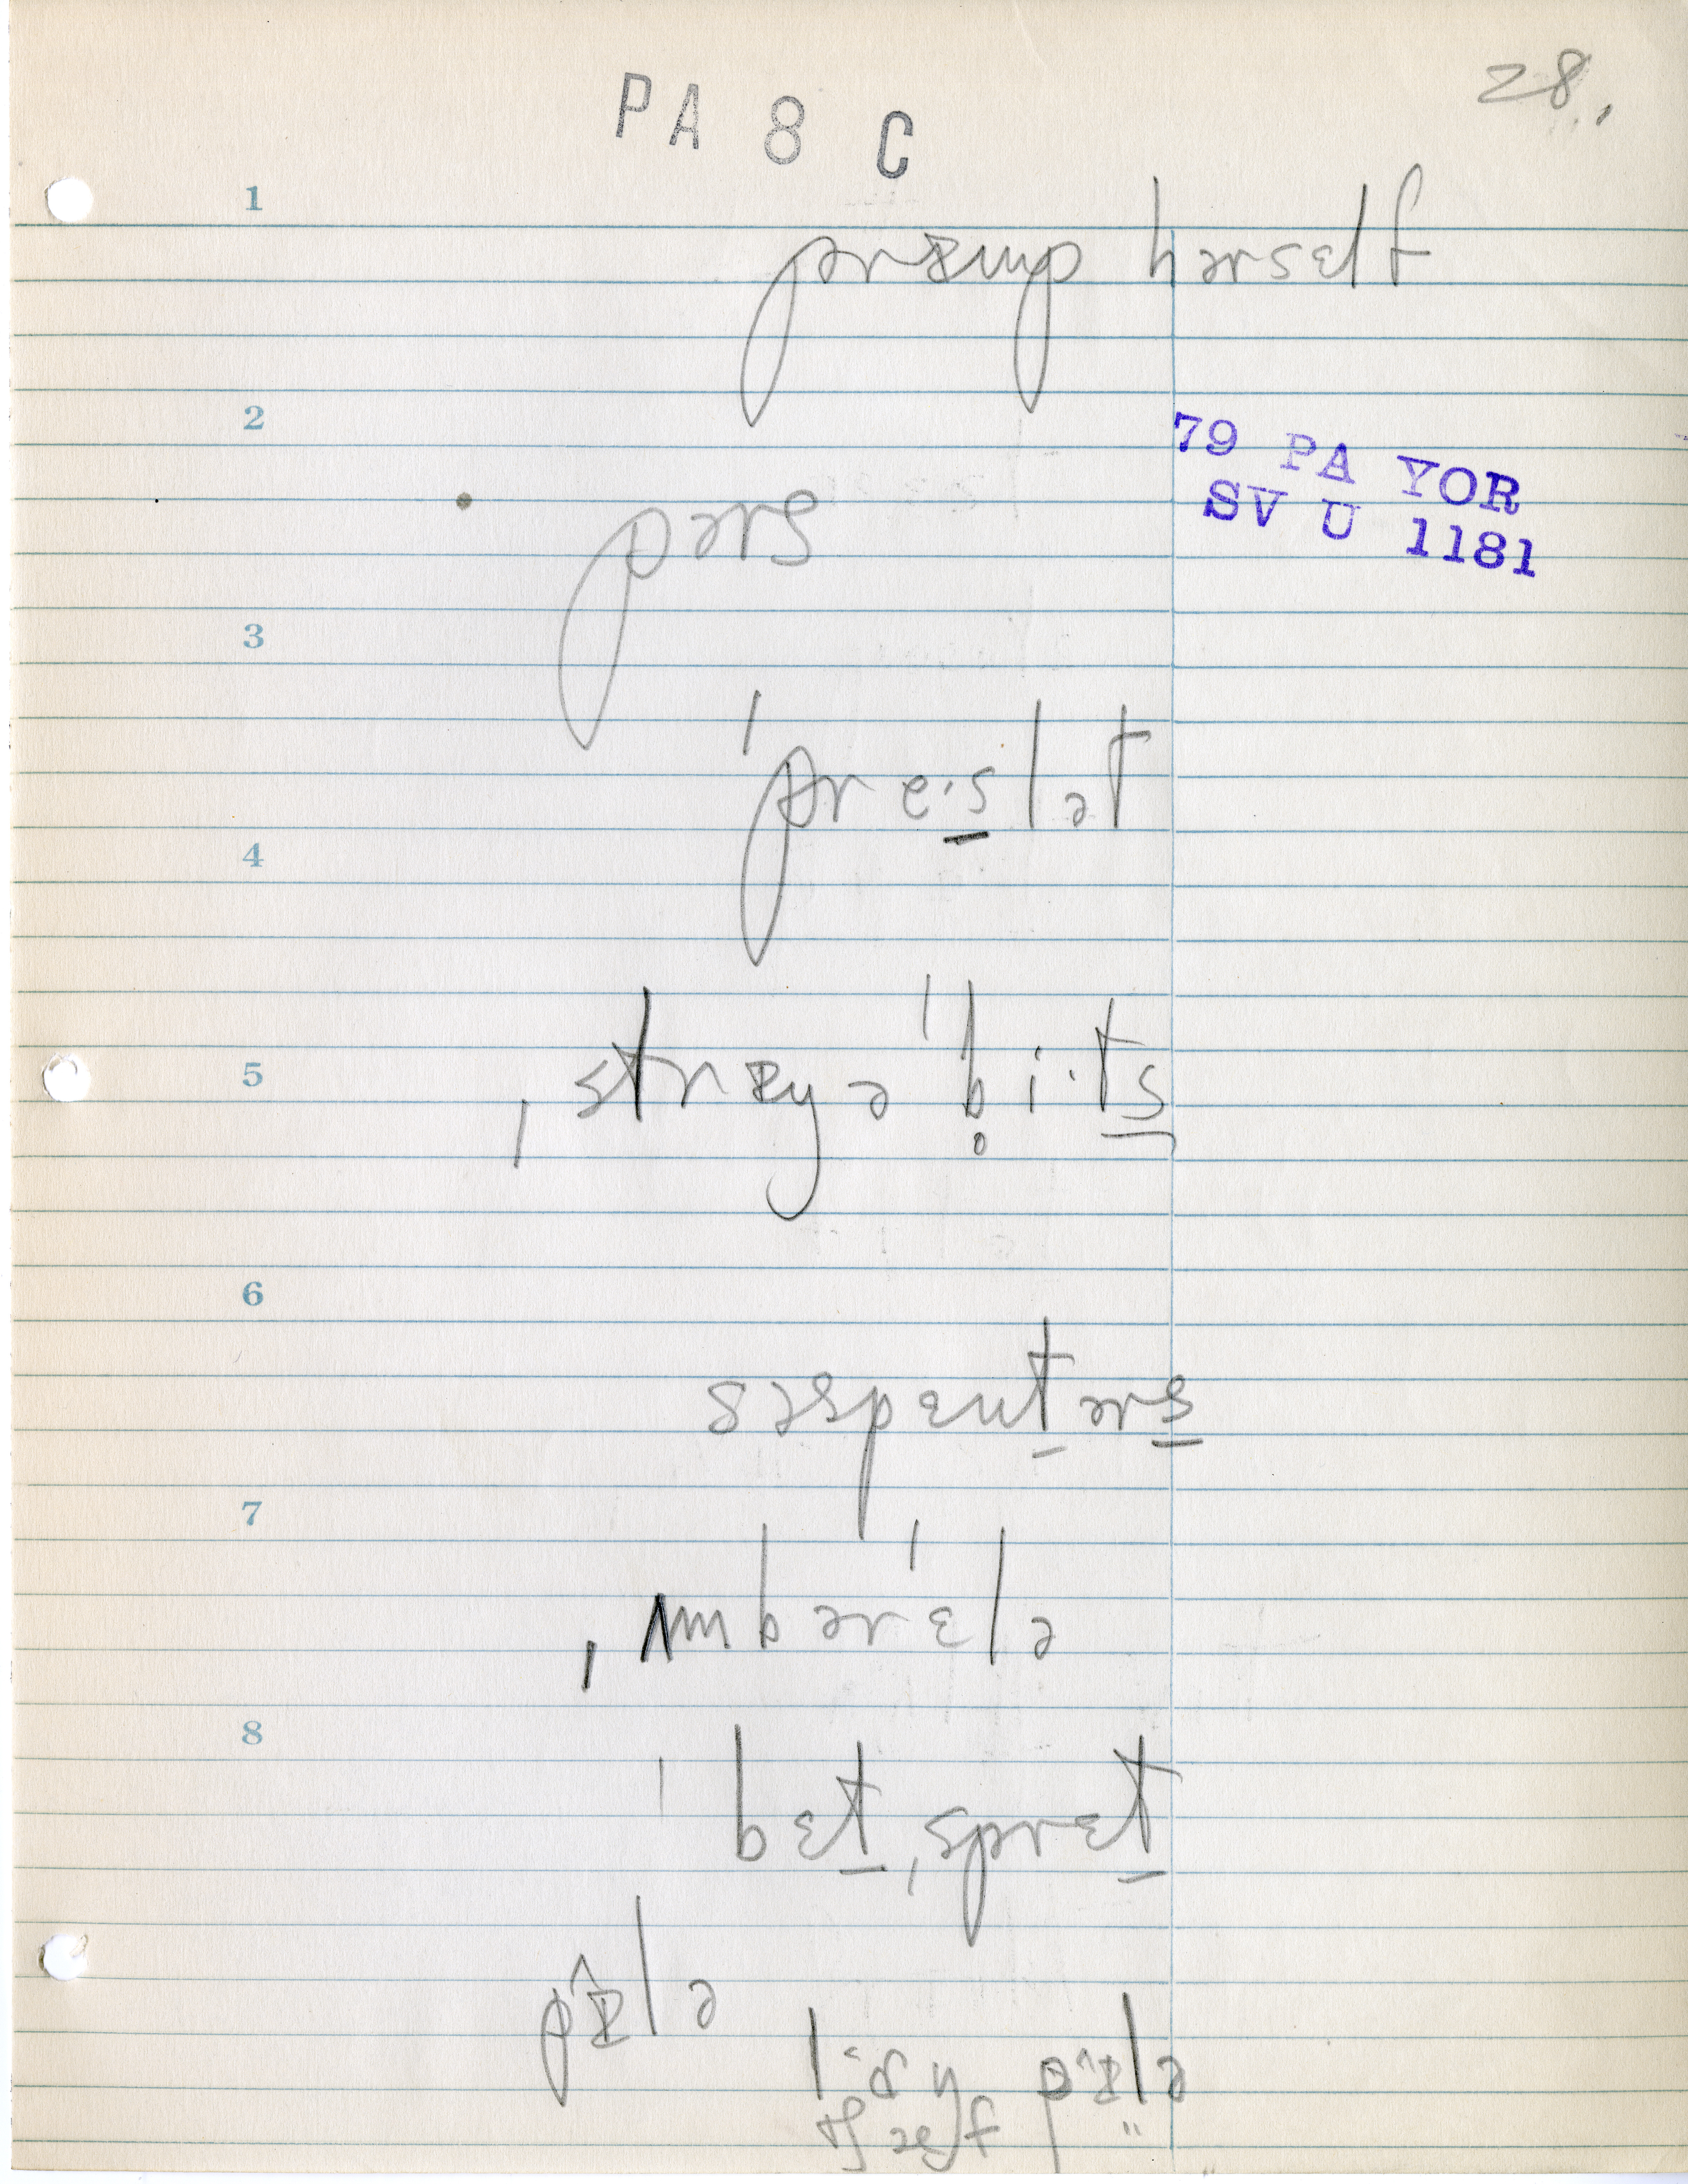 28.
PA 8 C
1
prɪmp hərsɛlf
2
79 PA YOR
SV U 1181
pərs
3
ˈpre·s̲lət
4
5
ˌstrɪŋ ə ˈb̥i·t̲s̲
6
səspɛnt̲ərs̲
7
ˌʌmbərˈɛlə
8
ˈbɛt̲ˌsprɛt̲
pɪ̂lə